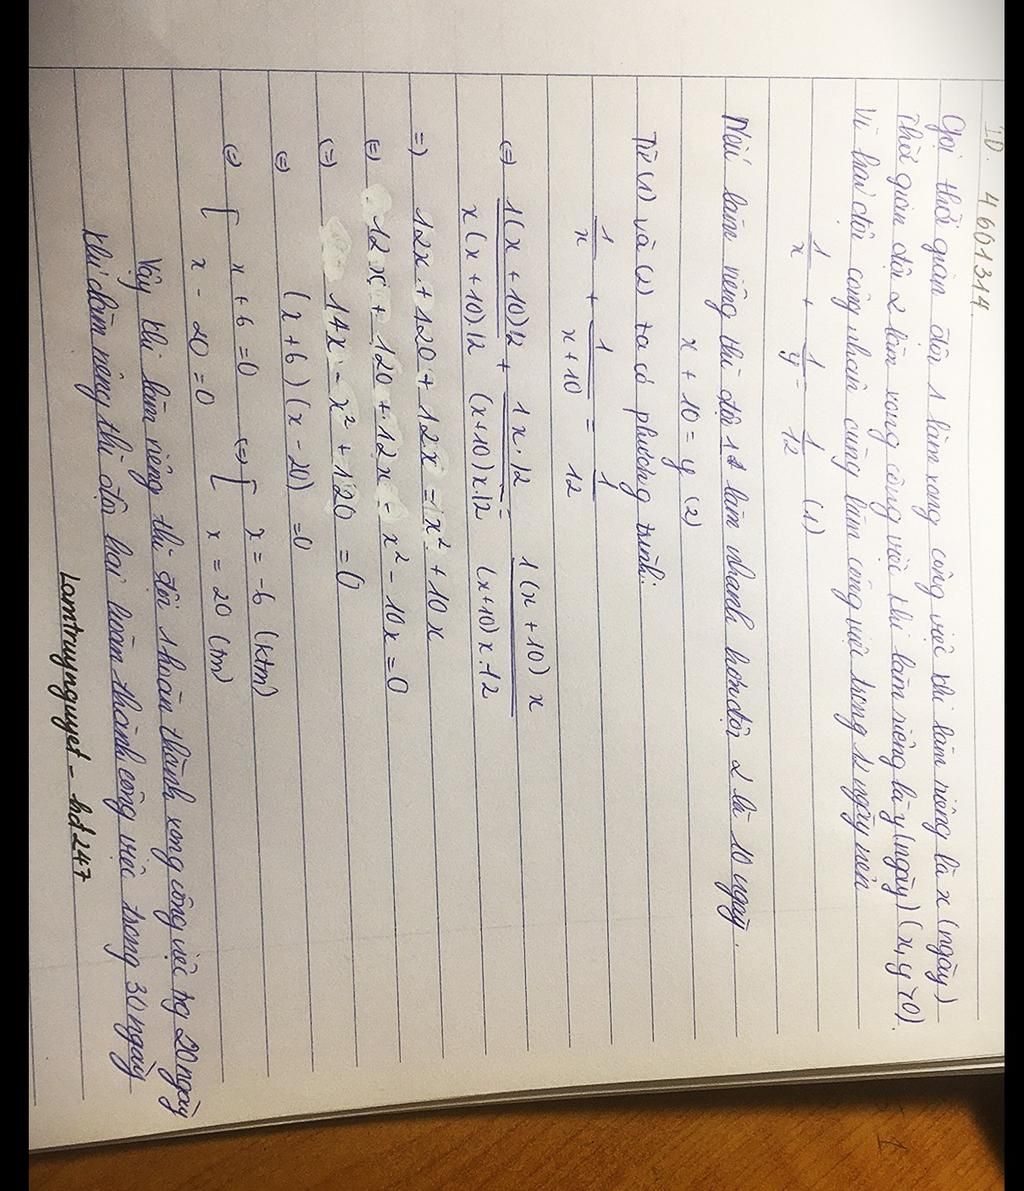 ID. 4601314
Gọi thời gian đội 1 làm xong công việc khi làm riêng là x (ngày)
Thời gian đội 2 làm xong công việc khi làm riêng là y (ngày) (x, y >0)
Vì hai đội công nhân cùng làm công việc trong 12 ngày nên
1/x + 1/y = 1/12 (1)
Nếu làm riêng thì đội 1 làm nhanh hơn đội 2 là 10 ngày.
x + 10 = y (2)
Từ (1) và (2) ta có phương trình:
1/x + 1/x+10 = 1/12
(=) 1(x + 10)12/x(x+10).12 + 1x.12/(x+10)x12 = 1(x+10)x/(x+10)x.12
=) 12x + 120 + 12x = x² + 10x
(=) 12x + 120 + 12x - x² - 10x = 0
(=) 14x - x² + 120 = 0
(=) (x + 6)(x - 20) = 0
(=) [ x + 6 = 0 (=) [ x = -6 (ktm)
x - 20 = 0 x = 20 (tm)
Vậy khi làm riêng thì đội 1 hoàn thành xong công việc trg 20 ngày
khi làm riêng thì đội hai hoàn thành công việc trong 30 ngày
Lamtruynguyet - hd247